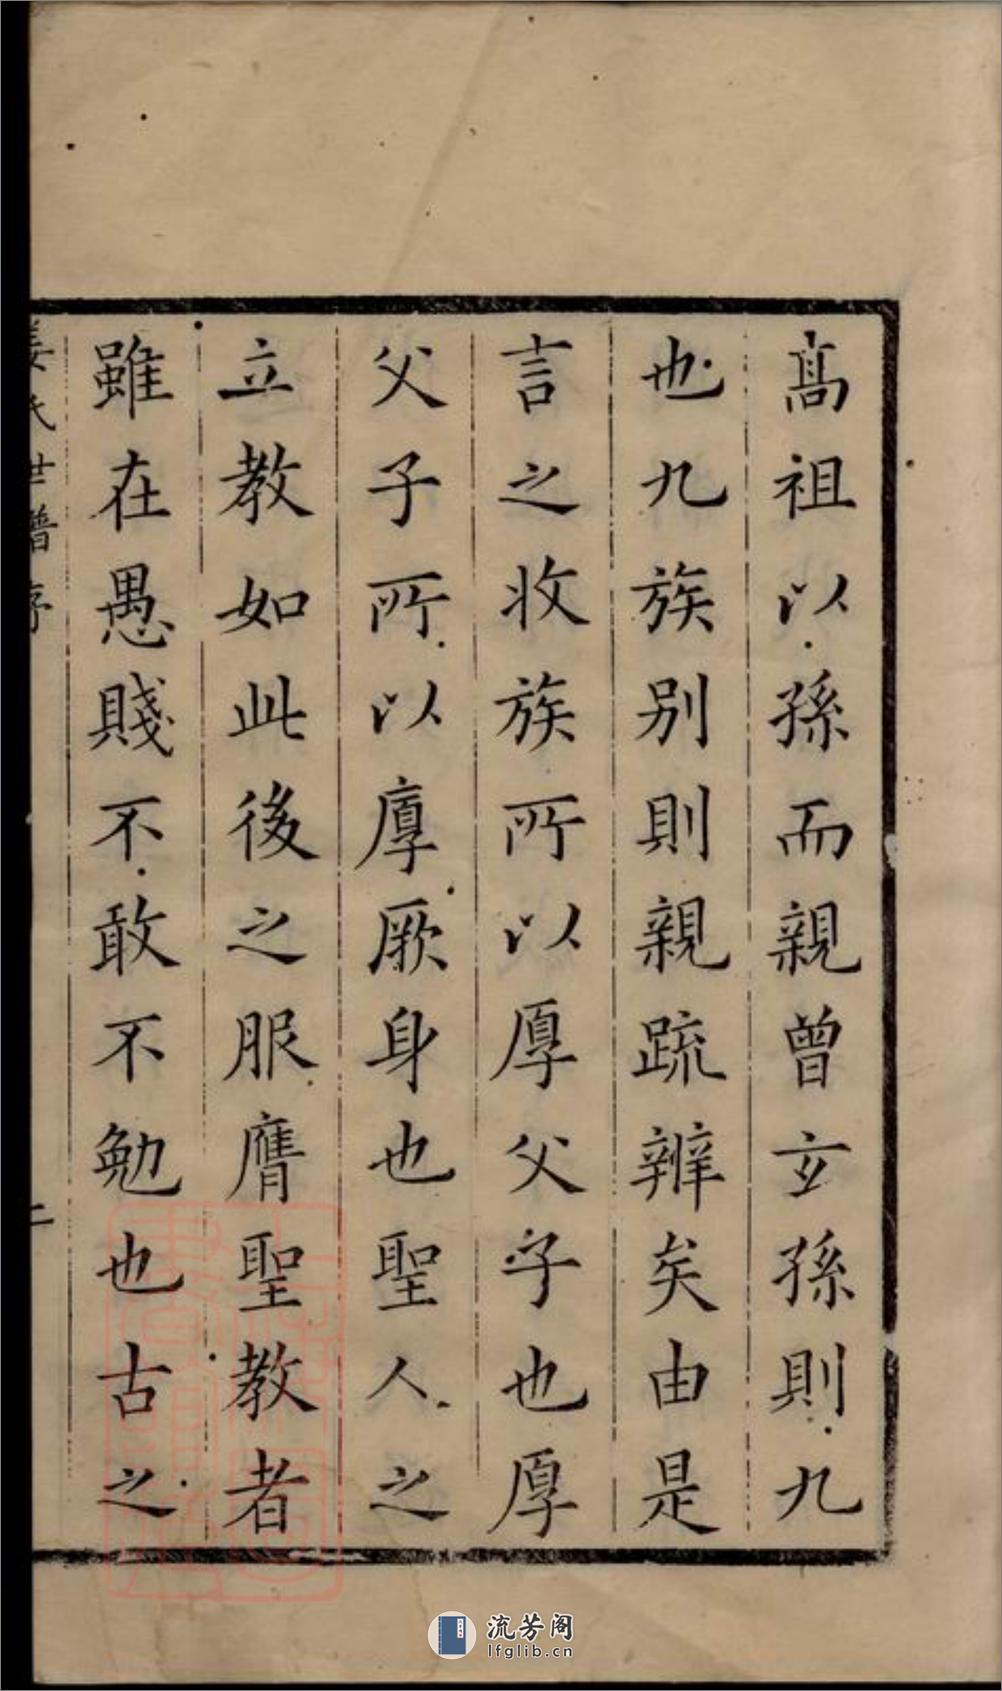 高祖以孫而親曾玄孫則九
也九族别則親疏辨矣由是
言之收族所以厚父子也厚
父子所以厚厥身也聖人之
立教如此後之服膺聖教者
雖在愚賤不敢不勉也古之
姜氏世譜序
二
流芳阁
lfglib.cn